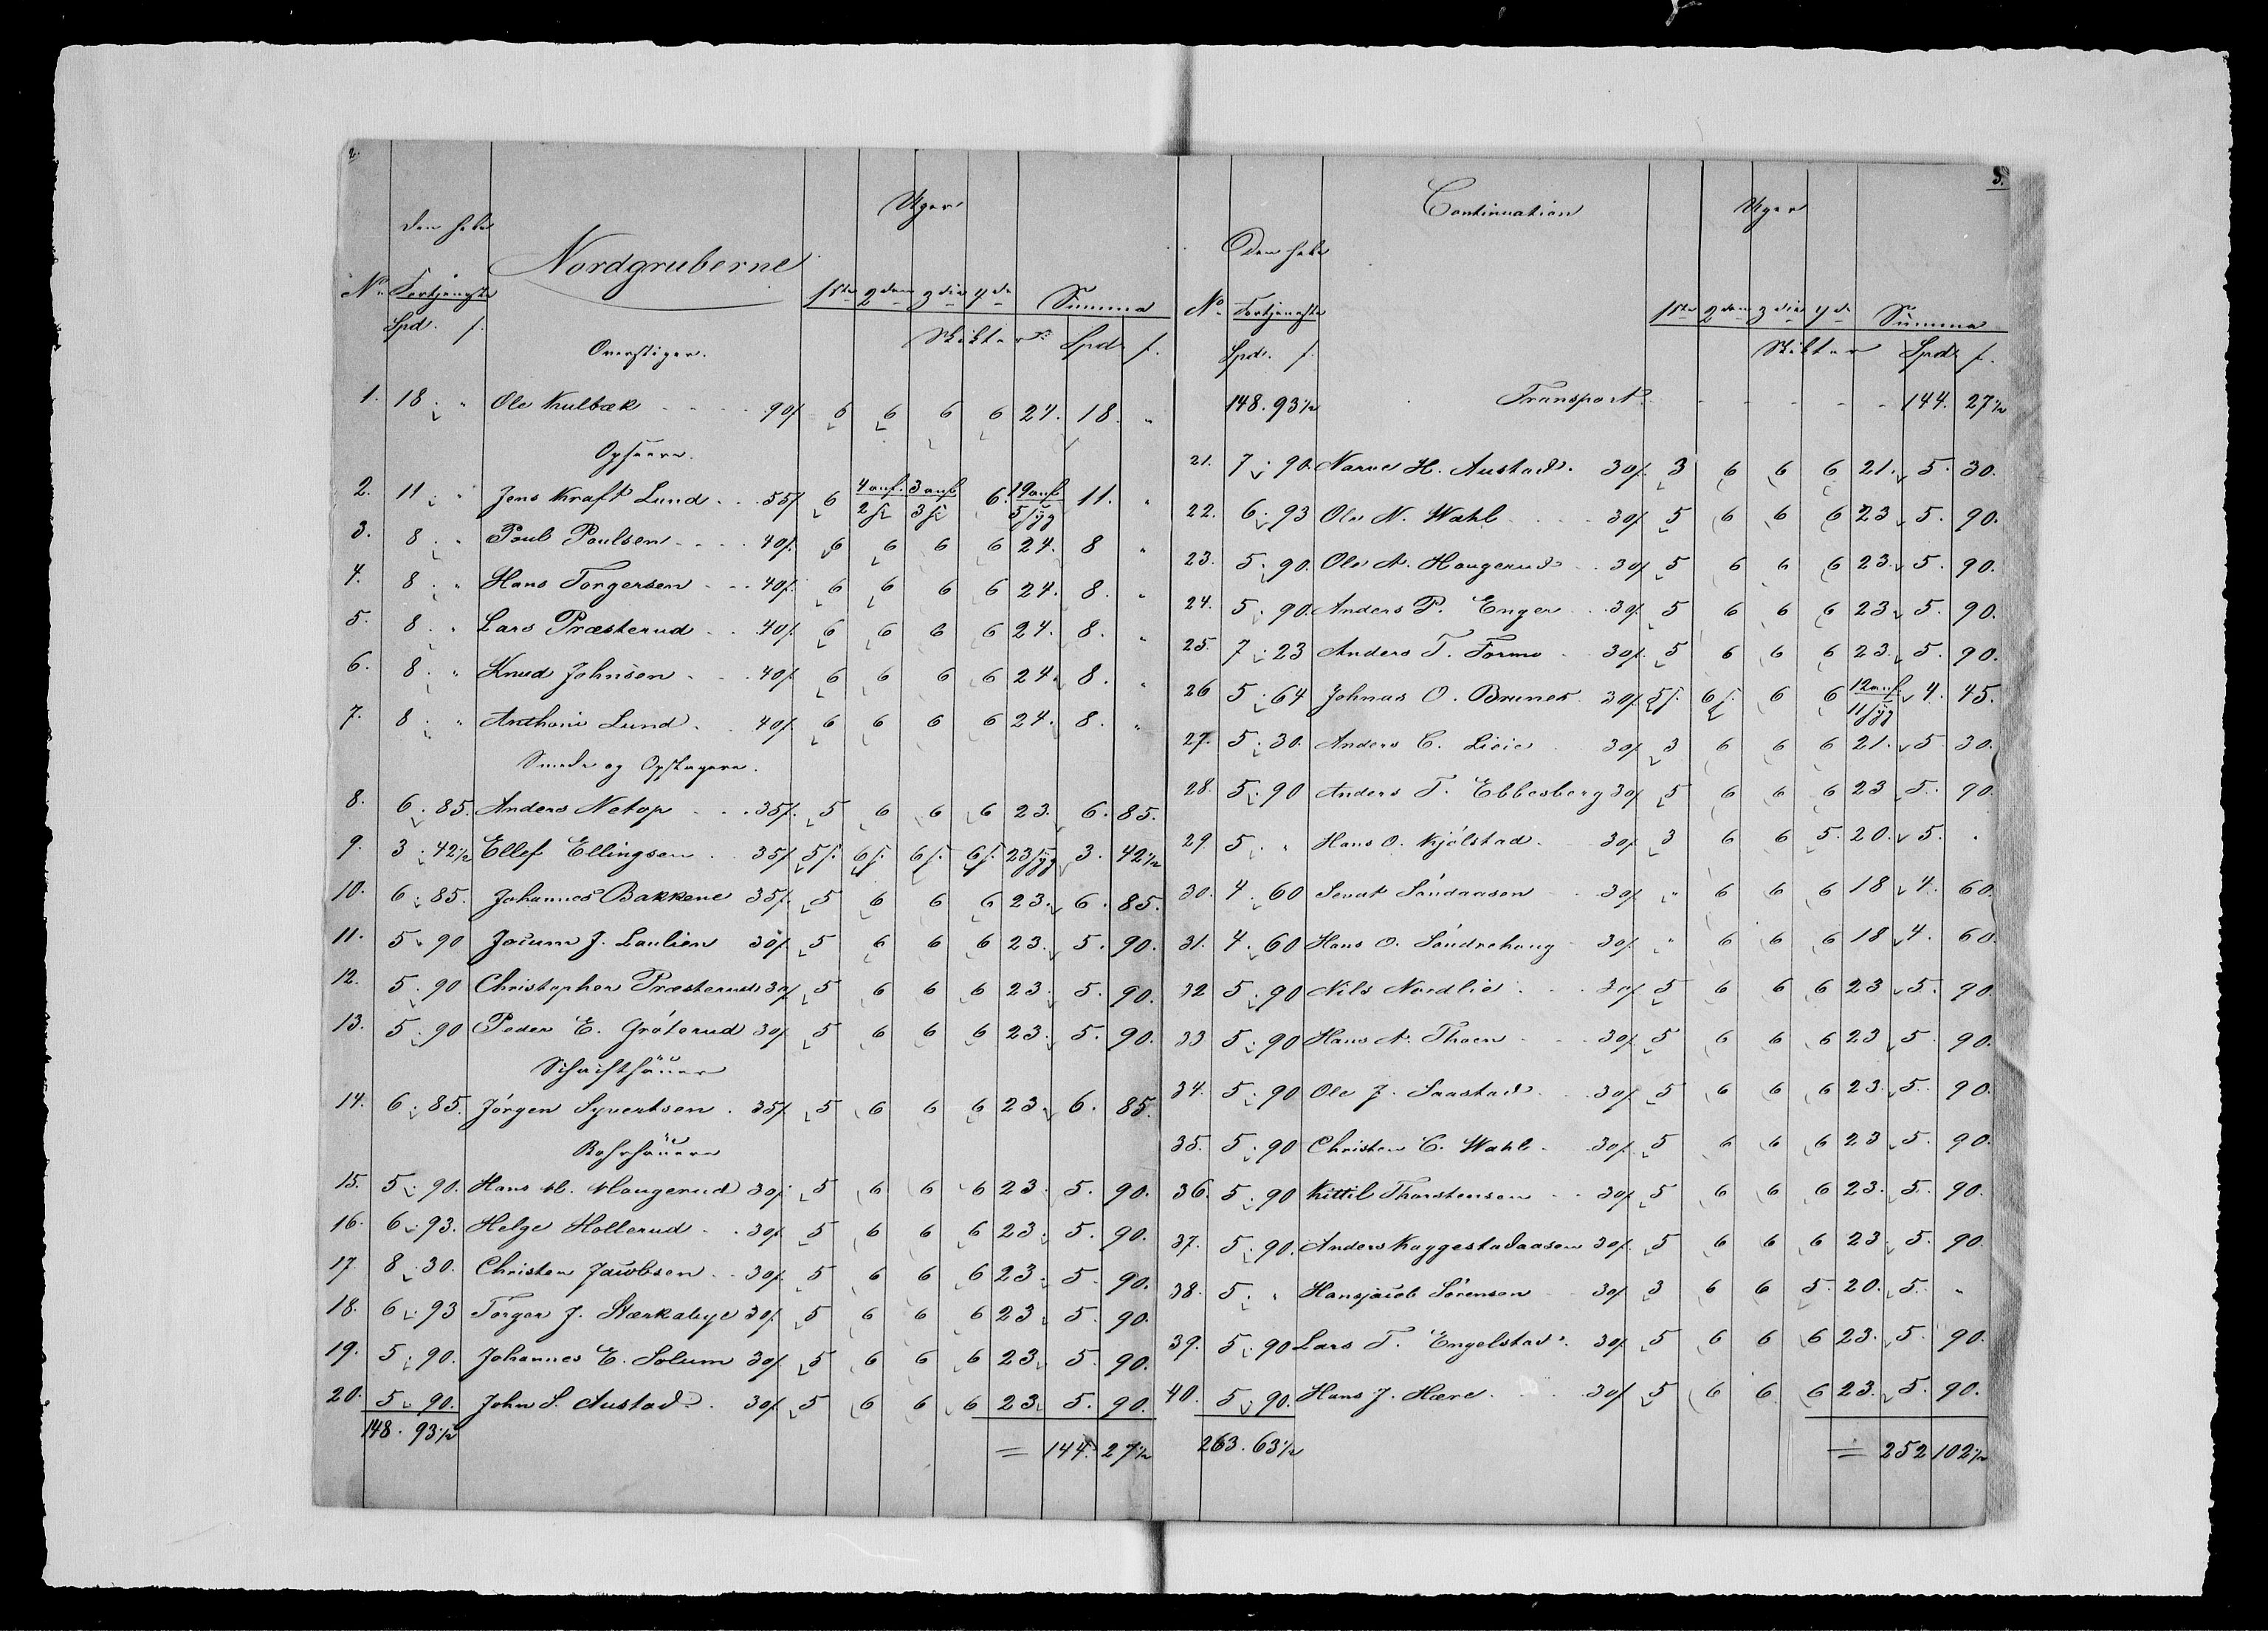 2.
Uger
den hele
Nordgruberne
No. Fortjeneste 1ste 2den 3die 4de Summa
Spd. s. Skikter Spd. s.
Overstiger.
1. 18. " Ole Kulbæk 90s 6 6 6 6 24. 18. "
Opseere.
2. 11. " Jens Kraft Lund 55s 6 4 anf. 2 si 3 anf. 3 si 6. 19 anf. 5 syg 11. "
3. 8. " Poul Poulsen 40s. 6 6 6 6 24. 8 "
4. 8. " Hans Torgersen 40s. 6 6 6 6 24. 8. "
5. 8. " Lars Præsterud 40s. 6 6 6 6 24. 8. "
6. 8. " Knud Johnsen 40s 6 6 6 6 24. 8. "
7. 8. " Anthoni Lund 40s. 6 6 6 6 24. 8. "
Smede og Opstagere.
8. 6. 85. Anders Netop 35s. 5 6 6 6 23. 6. 85.
9. 3. 42½ Ellef Ellingsen 35s 5s. 6s. 6s. 6s. 23 syg 3. 42½
10. 6. 85. Johannes Bakkene 35s. 5 6 6 6 23. 6. 85.
11. 5. 90 Jocum J. Laulien 30s. 5 6 6 6 23. 5. 90.
12. 5. 90 Christopher Præsterud 30s. 5 6 6 6 23. 5. 90.
13. 5. 90 Peder E. Gróterud 30s. 5 6 6 6 23. 5. 90.
Schrifthäuer
14. 6. 85. Jórgen Syvertsen. 35s. 5 6 6 6 23. 6. 85.
Bohrhäuere
15. 5. 90. Hans H. Haugerud 30s. 5 6 6 6 23. 5. 90.
16. 6. 93. Helge Hollerud 30s. 5 6 6 6 23. 5. 90.
17 8. 30. Christen Jacobsen 30s. 5 6 6 6 23. 5. 90.
18. 6. 93 Torger J. Stærkebye 30s. 5 6 6 6 23. 5. 90.
19. 5. 90. Johannes E. Solum 30s. 5 6 6 6 23. 5. 90.
20. 5. 90. John S. Austad 30s. 5 6 6 6 23. 5. 90.
148. 93½
= 144. 27½
3.
Continuation Uger
Den hele
No. Fortjeneste 1ste 2den 3die 4de Summa
Spd. s. Skikter Spd. s.
148. 93½ Transport 144. 27½
21. 7. 90. Narve H. Austad. 30s. 3 6 6 6 21. 5. 30.
22. 6. 93 Ole N. Wahl 30s. 5 6 6 6 23 5. 90.
23. 5. 90. Ole A. Haugerud 30s. 5 6 6 6 23. 5. 90.
24. 5. 90. Anders P. Enger 30s. 5 6 6 6 23. 5. 90.
25. 7. 23 Anders T. Formo 30s. 5 6 6 6 23. 5. 90.
26 5. 64 Johnas O. Brunes 30s. 5s. 6s. 6 6 12 anf. 11 syg 4. 45.
27. 5. 30. Anders C. Lieie 30s. 3 6 6 6 21. 5 30.
28. 5. 90 Anders T. Ebbesberg 30s 5 6 6 6 23 5. 90.
29. 5. " Hans O. Kjólstad 30s. 3 6 6 5. 20. 5. "
30. 4. 60 Sevat Sóndaasen 30s " 6 6 6 18 4. 60.
31. 4. 60 Hans O. Sóndrehaug 30s. " 6 6 6 18 4. 60.
32 5. 90 Nils Nordlie 30s. 5 6 6 6 23 5. 90.
33 5. 90 Hans A. Thoen 30s. 5 6 6 6 23 5 90.
34. 5. 90 Ole J. Saastad 30s. 5 6 6 6 23. 5. 90.
35. 5. 90 Christen C. Wahl 30s. 5 6 6 6 23 5. 90.
36. 5. 90 Kittil Thorstensen 30s. 5 6 6 6 23. 5. 90.
37. 5. 90. Anders Kaggestadaasen 30s. 5 6 6 6 23 5. 90.
38. 5. " Hansjacob Sórensen 30s 3 6 6 5. 20. 5. "
39. 5. 90 Lars T. Engelstad. 30s. 5 6 6 6 23. 5. 90.
40. 5. 90. Hans J. Hære. 30s 5 6 6 6 23. 5. 90.
263. 63½
= 252 102½